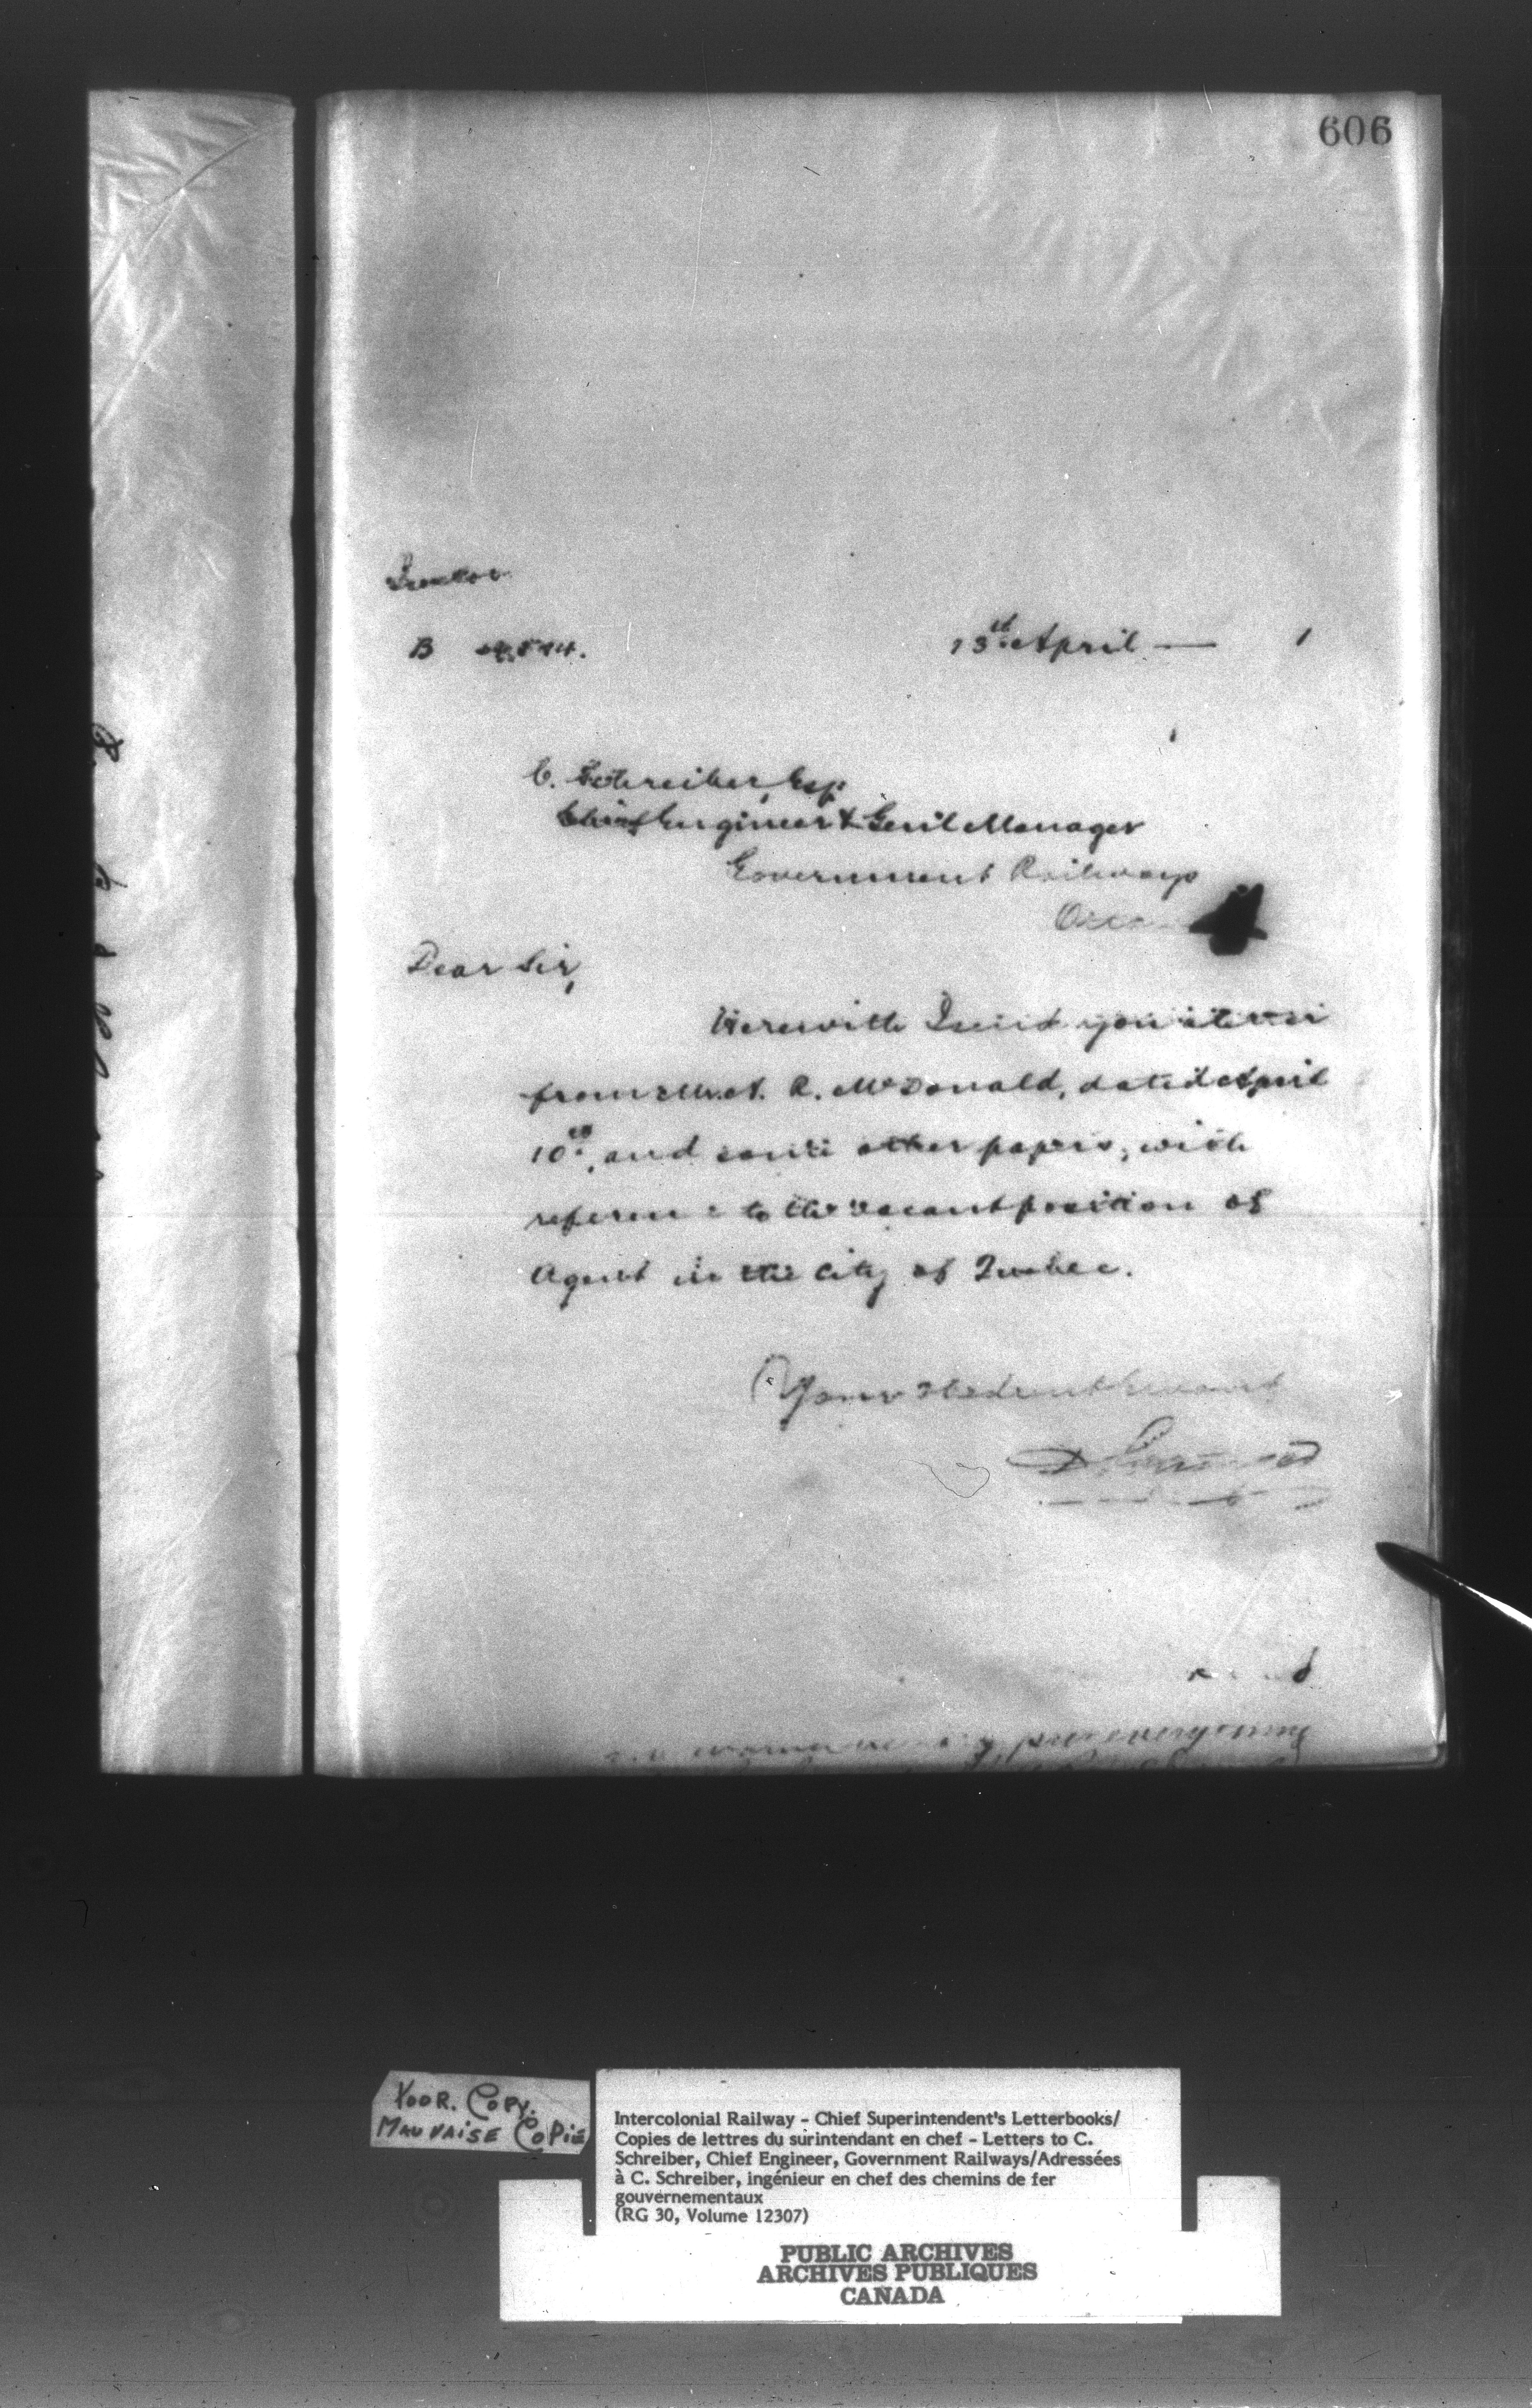 606
B
13th April — 1
C. Schreiber, Esq
Chief Engineer & Genl Manager
Government Railways
Dear Sir,
Herewith I send you letter
from Mr. A. R. McDonald, dated April
10th, and some other papers, with
reference to the vacant position of
Agent in the City of Quebec.
Your obedient servant
POOR. COPY.
MAUVAISE COPIE
Intercolonial Railway - Chief Superintendent's Letterbooks/
Copies de lettres du surintendant en chef - Letters to C.
Schreiber, Chief Engineer, Government Railways/Adressées
à C. Schreiber, ingénieur en chef des chemins de fer
gouvernementaux
(RG 30, Volume 12307)
PUBLIC ARCHIVES
ARCHIVES PUBLIQUES
CANADA